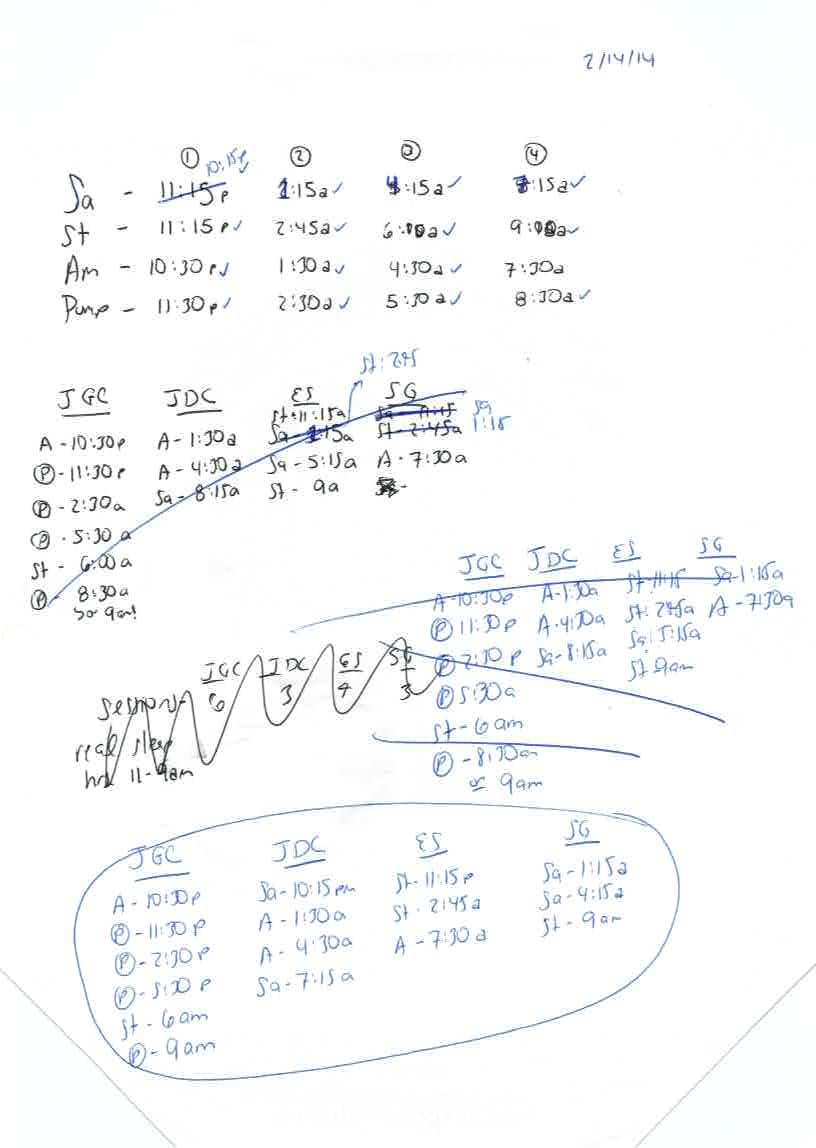 2/14/14
① ② ③ ④
10:15p
Sa - 11:15p 1:15a ✓ 4:15a ✓ 7:15a ✓
St - 11:15p ✓ 2:45a ✓ 6:00a ✓ 9:00a ✓
Am - 10:30p ✓ 1:30a ✓ 4:30a ✓ 7:30a
Pump - 11:30p ✓ 2:30a ✓ 5:30a ✓ 8:30a ✓
St: 245
JGC JDC ES SG
St - 11:15a Sa - 11:15 Sa
A - 10:30p A - 1:30a Sa - 1:15a St - 2:45a 1:15
Ⓟ - 11:30p A - 4:30a Sa - 5:15a A - 7:30a
Ⓟ - 2:30a Sa - 8:15a St - 9a
Ⓟ - 5:30a
St - 6:00a
Ⓟ - 8:30a
or 9am!
JGC JDC ES SG
A-10:30p A-1:30a St-11:15 Sa-1:15a
Ⓟ 11:30p A-4:30a St: 245a A-7:30a
Ⓟ 2:30p Sa-8:15a Sa: 5:15a
Ⓟ 5:30a St 9am
St - 6am
Ⓟ - 8:30am
or 9am
JGC JDC ES SG
Sessions- 6 3 4 3
real sleep
hrs 11-9am
JGC JDC ES SG
A - 10:30p Sa-10:15pm St-11:15p Sa-1:15a
Ⓟ - 11:30p A - 1:30a St - 2:45a Sa-4:15a
Ⓟ - 2:30p A - 4:30a A - 7:30a St - 9am
Ⓟ - 5:30p Sa-7:15a
St - 6am
Ⓟ - 9am